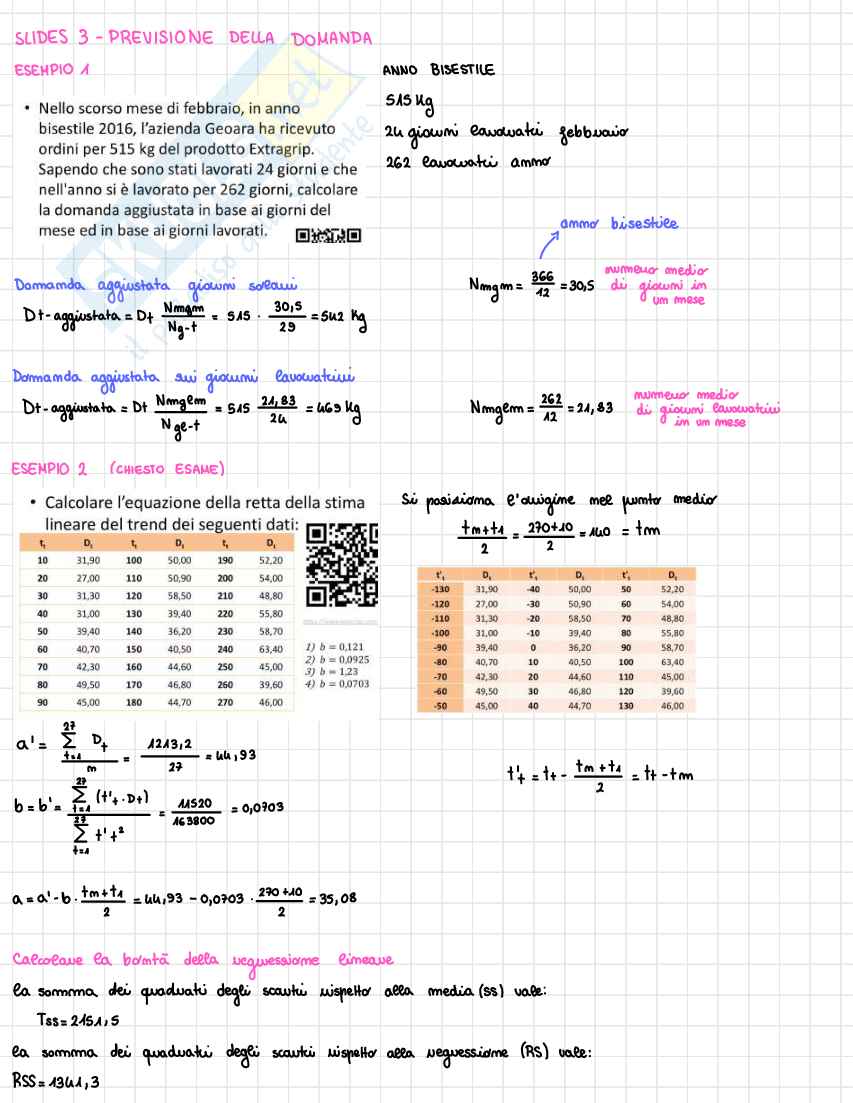 SLIDES 3 - PREVISIONE DELLA DOMANDA
ESEMPIO 1
• Nello scorso mese di febbraio, in anno
bisestile 2016, l'azienda Geoara ha ricevuto
ordini per 515 kg del prodotto Extragrip.
Sapendo che sono stati lavorati 24 giorni e che
nell'anno si è lavorato per 262 giorni, calcolare
la domanda aggiustata in base ai giorni del
mese ed in base ai giorni lavorati.
ANNO BISESTILE
515 Kg
24 giorni lavorati febbraio
262 lavorati anno
Domanda aggiustata giorni solari
Dt-aggiustata = Dt Nmgm / Ng-t = 515 · 30,5 / 29 = 542 Kg
anno bisestile
Nmgm = 366 / 12 = 30,5
numero medio
di giorni in
un mese
Domanda aggiustata sui giorni lavorativi
Dt-aggiustata = Dt Nmgem / Nge-t = 515 21,83 / 24 = 469 Kg
Nmgem = 262 / 12 = 21,83
numero medio
di giorni lavorativi
in un mese
ESEMPIO 2 (CHIESTO ESAME)
• Calcolare l'equazione della retta della stima
lineare del trend dei seguenti dati:
t_t D_t t_t D_t t_t D_t
10 31,90 100 50,00 190 52,20
20 27,00 110 50,90 200 54,00
30 31,30 120 58,50 210 48,80
40 31,00 130 39,40 220 55,80
50 39,40 140 36,20 230 58,70
60 40,70 150 40,50 240 63,40
70 42,30 160 44,60 250 45,00
80 49,50 170 46,80 260 39,60
90 45,00 180 44,70 270 46,00
1) b = 0,121
2) b = 0,0925
3) b = 1,23
4) b = 0,0703
Si posiziona l'origine nel punto medio
tn+t1 / 2 = 270+10 / 2 = 140 = tm
t'_t D_t t'_t D_t t'_t D_t
-130 31,90 -40 50,00 50 52,20
-120 27,00 -30 50,90 60 54,00
-110 31,30 -20 58,50 70 48,80
-100 31,00 -10 39,40 80 55,80
-90 39,40 0 36,20 90 58,70
-80 40,70 10 40,50 100 63,40
-70 42,30 20 44,60 110 45,00
-60 49,50 30 46,80 120 39,60
-50 45,00 40 44,70 130 46,00
a' = 27 Σ t=1 Dt / n = 1213,2 / 27 = 44,93
t't = tt - tn + t1 / 2 = tt - tm
b = b' = 27 Σ t=1 (t't · Dt) / 27 Σ t=1 t't² = 11520 / 163800 = 0,0703
a = a' - b · tn + t1 / 2 = 44,93 - 0,0703 · 270 + 10 / 2 = 35,08
Calcolare la bontà della regressione lineare
la somma dei quadrati degli scarti rispetto alla media (SS) vale:
Tss = 2151,5
la somma dei quadrati degli scarti rispetto alla regressione (RS) vale:
RSS = 1341,3